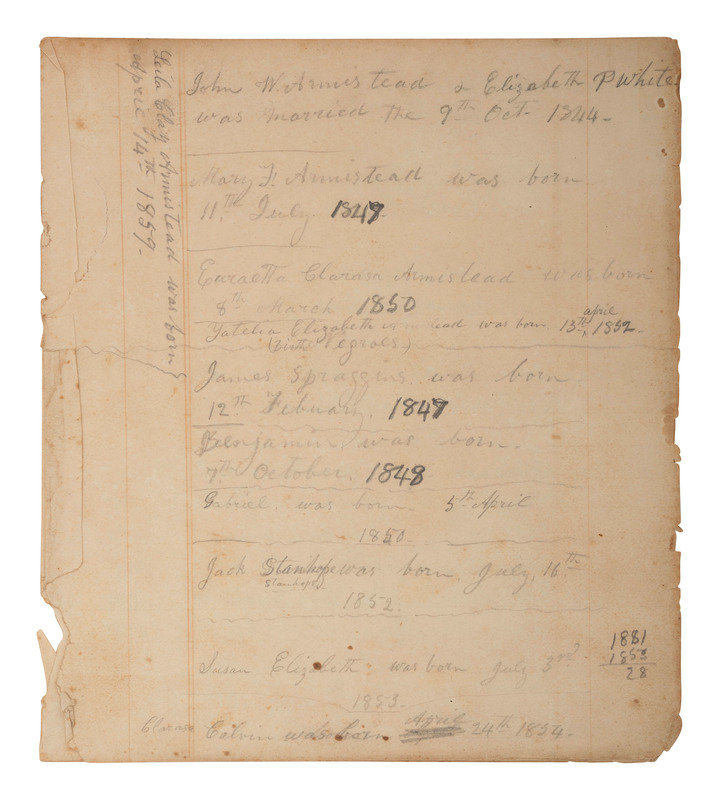 John W. Armistead & Elizabeth P White
was married the 9th Oct. 1844.
Mary F. Armistead was born
11th July. 1847.
Euraetta Clarasa Armistead was born
8th March 1850
Elizabeth was born 13th april 1852.
(Births Negroes)
James Spraggins was born
12th Febuary, 1847
Benjamin was born
7th October. 1848
Gabriel. was born 5th April
1850.
Jack Stanhope was born, July, 16th
Stanhope
1852.
Susan Elizabeth was born July 3rd
1853.
Clarasa Colvin was born April 24th 1854.
1881
1853
28
Leila Clay Armistead was born
April 14th 1859.